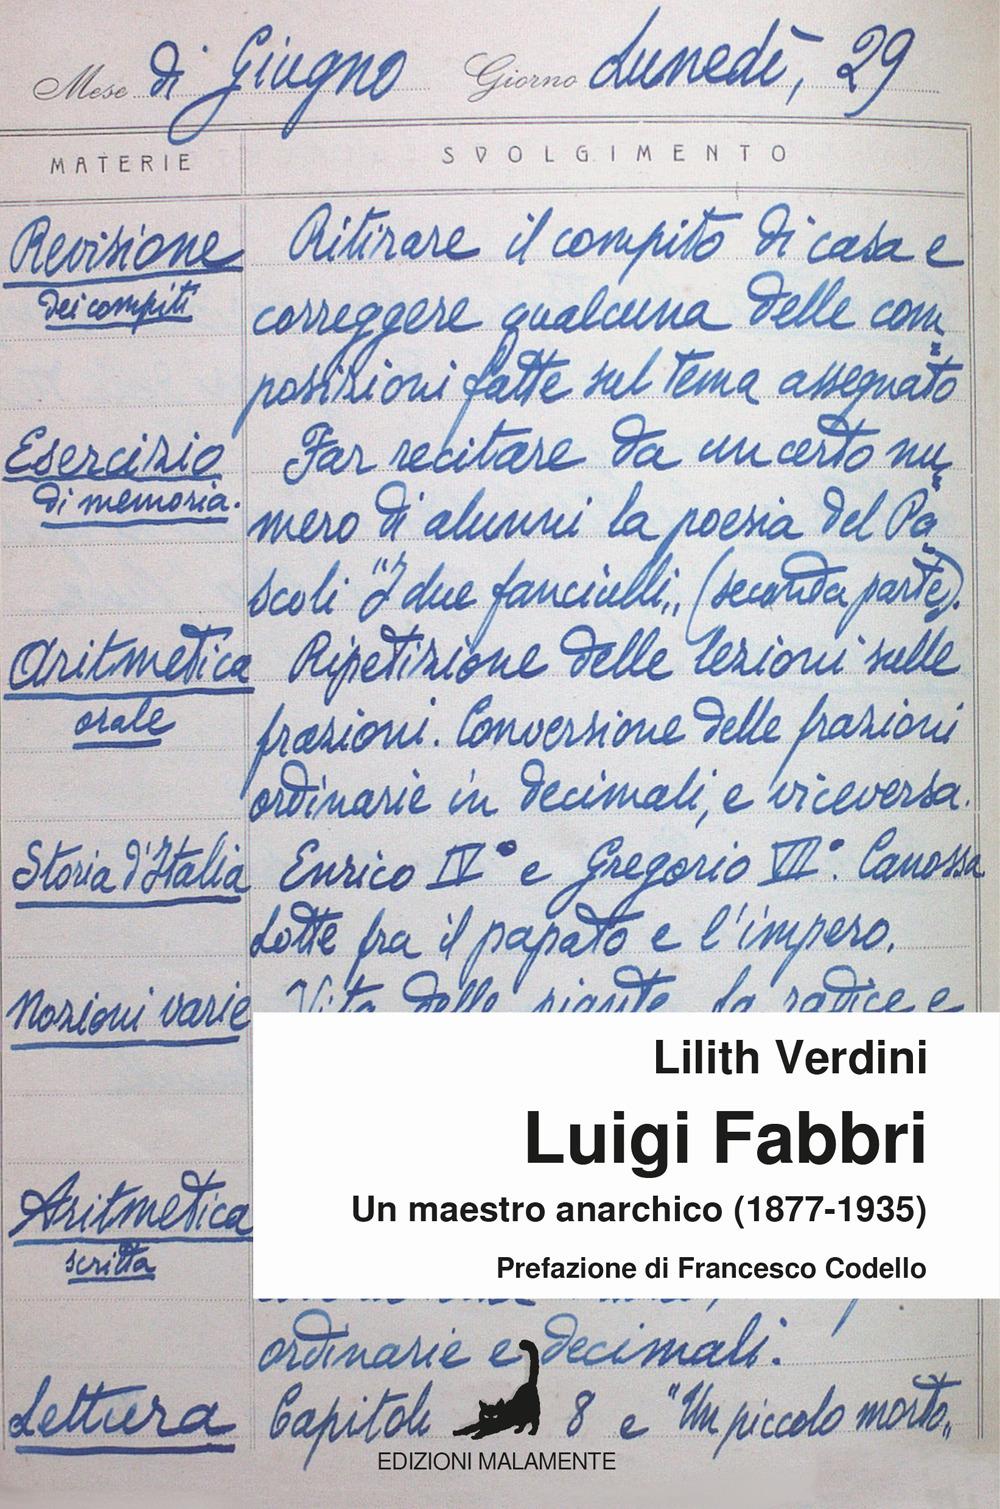 Mese di Giugno Giorno Lunedì, 29
MATERIE SVOLGIMENTO
Revisione Ritirare il compito di casa e
dei compiti correggere qualcuna delle com
posizioni fatte sul tema assegnato
Esercizio Far recitare da un certo nu
di memoria. mero di alunni la poesia del Pa
scoli "I due fanciulli„ (seconda parte).
Aritmetica Ripetizione delle lezioni sulle
orale frazioni. Conversione delle frazioni
ordinarie in decimali, e viceversa.
Storia d'Italia Enrico IV° e Gregorio VII°. Canossa
Lotte fra il papato e l'impero.
Nozioni varie Vita delle piante. La radice e
Lilith Verdini
Luigi Fabbri
Un maestro anarchico (1877-1935)
Prefazione di Francesco Codello
Aritmetica
scritta
ordinarie e decimali.
Lettura Capitoli 8 e "Un piccolo morto„
EDIZIONI MALAMENTE